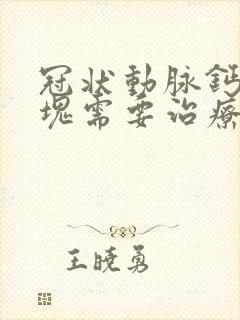 冠状動脉鈣
塊需要治療
王晓勇